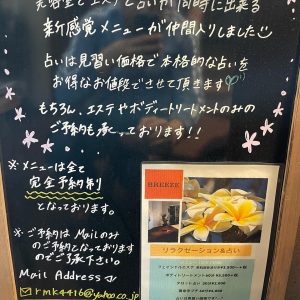 完治室でエステと占いが同時に出来る
新感覚メニューが仲間入りしました
占いは見習い価格で本格的な占いを
お得なお値段でさせて頂きます♡
もちろん、エステやボディートリートメントのみの
ご予約も承っております!!
※メニューは全て
完全予約制
となっております。
※ご予約はMailのみ
のご予約となっております
のでご了承下さい。
Mail Address
rmk4416@yahoo.co.jp
BREEZE
リラクゼーション&占い